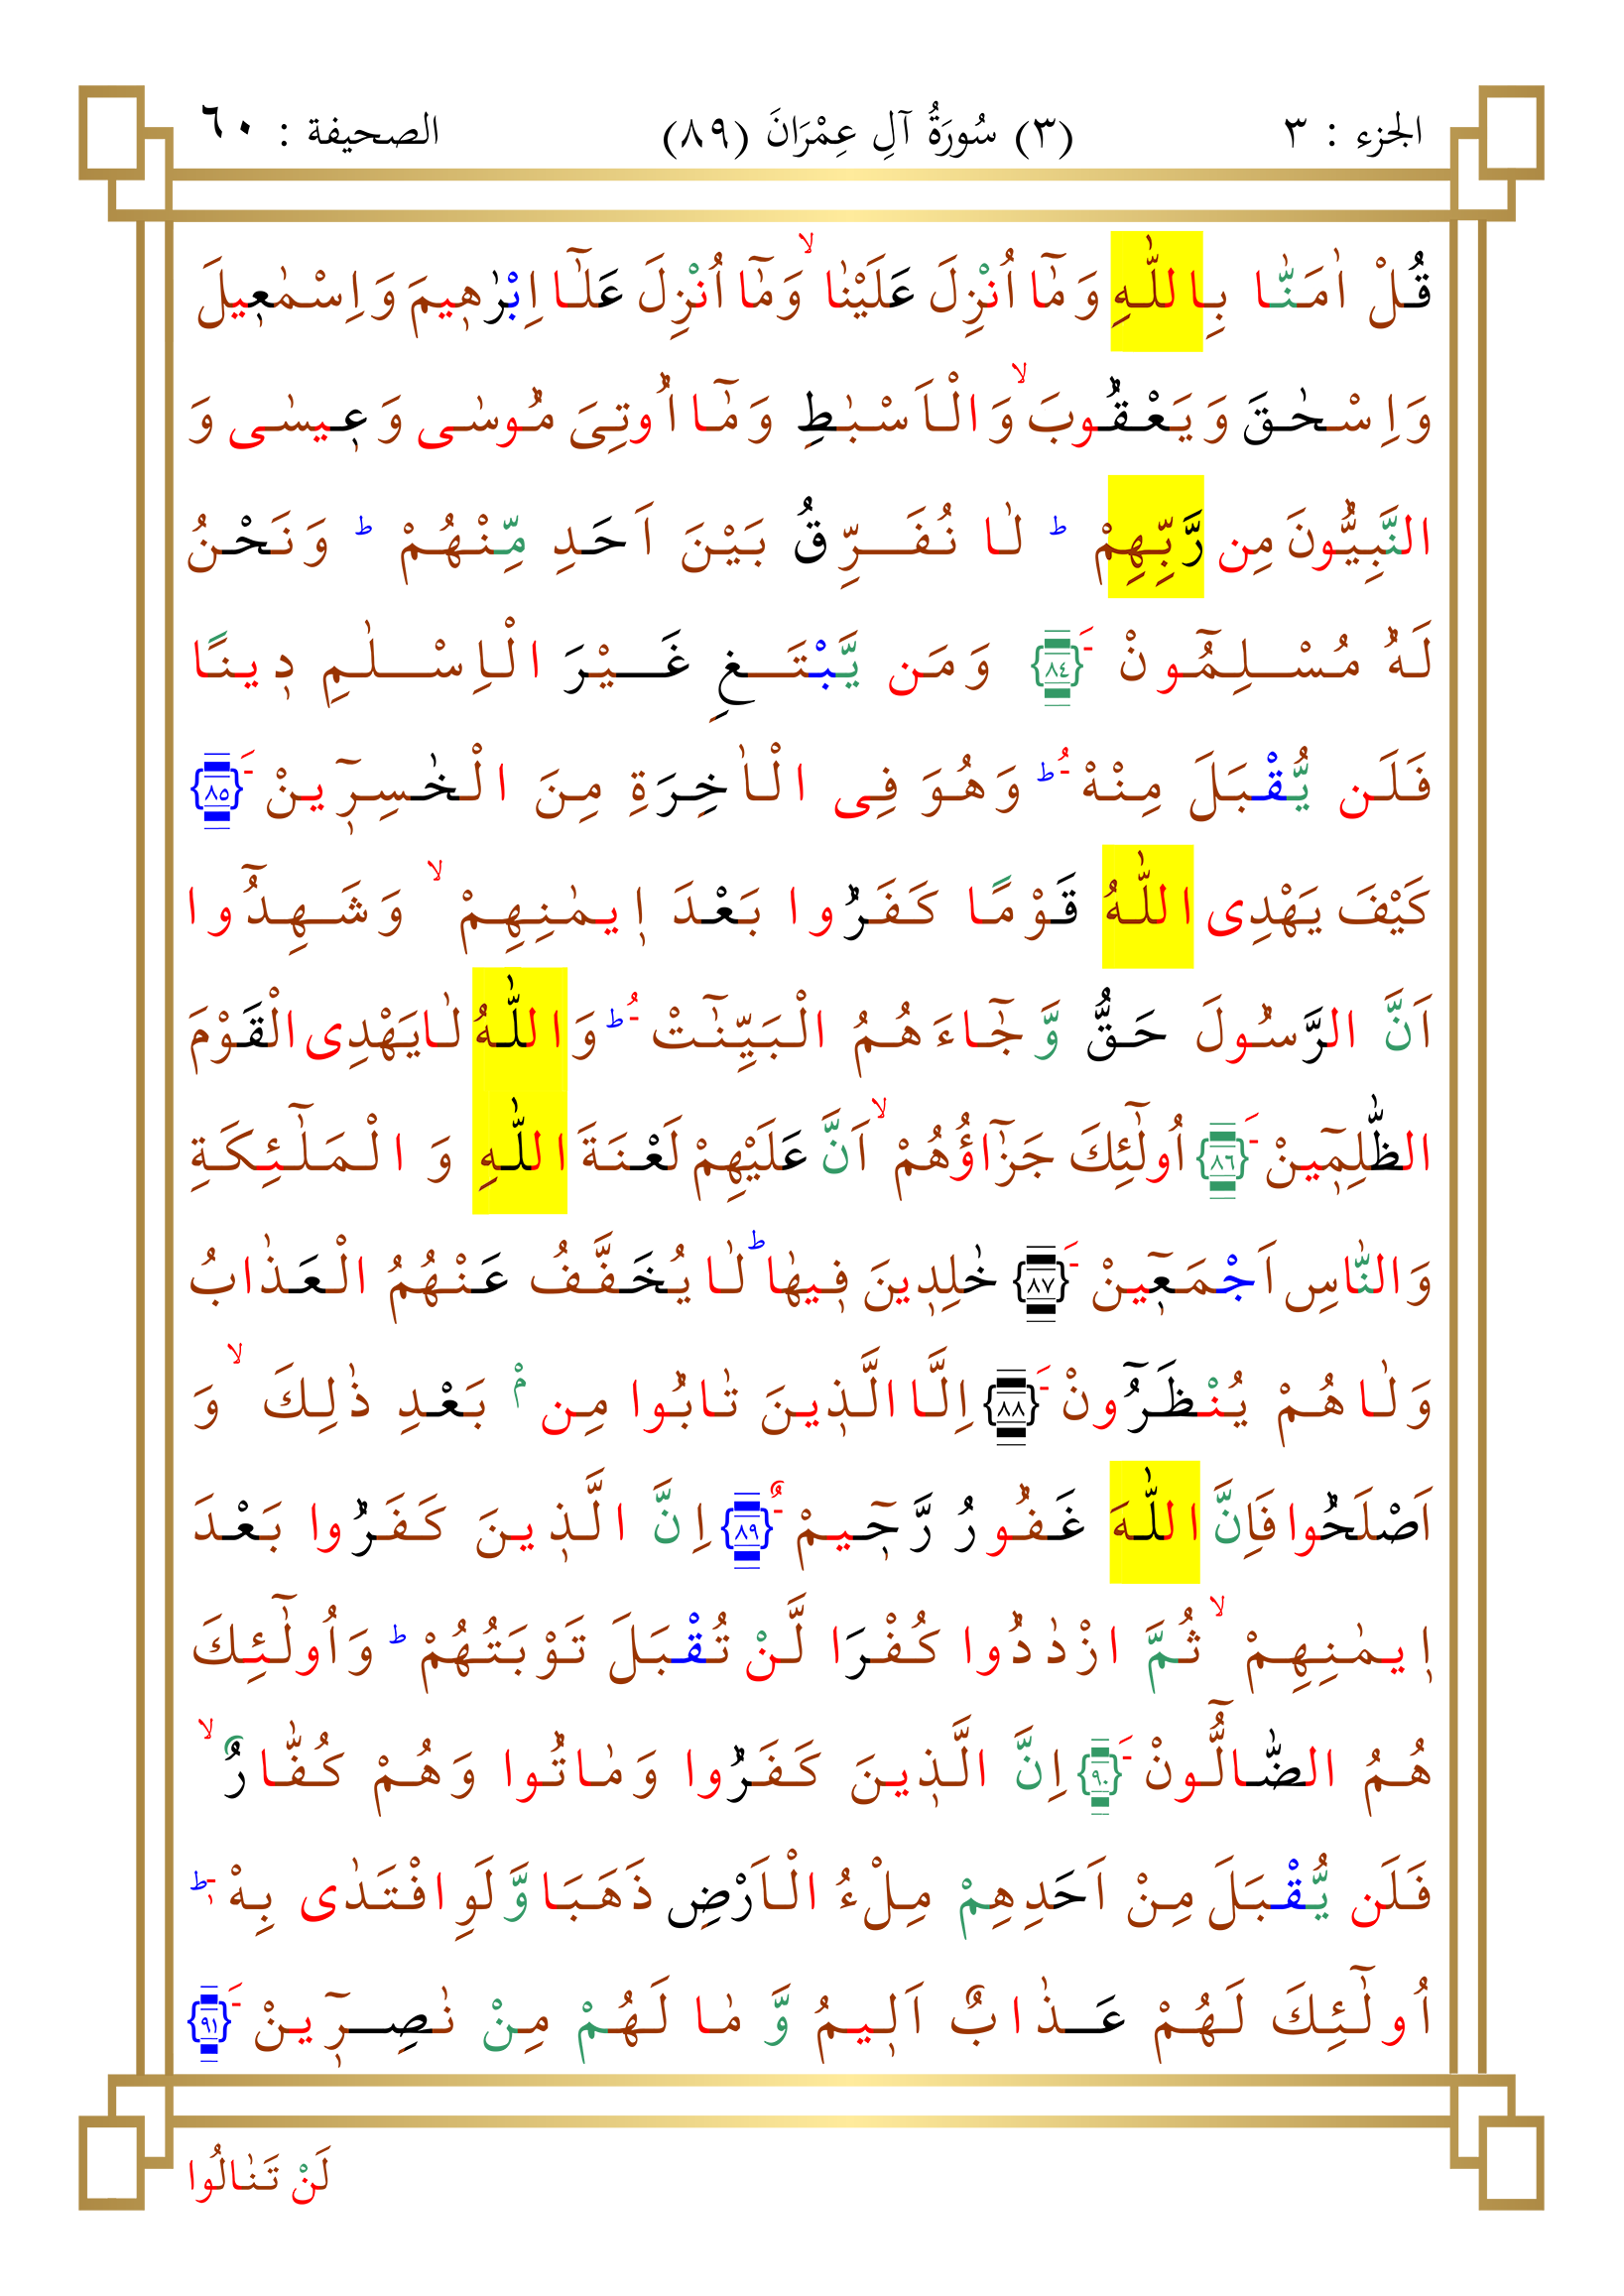 الجزء : ٣
(٣) سُورَةُ آلِ عِمْرَانَ (٨٩)
الصحيفة : ٦٠
قُلْ اٰمَنَّٰا بِاللّٰهِ وَمَٰٓا اُنْزِلَ عَلَيْنٰا ۙ وَمَٰٓا اُنْزِلَ عَلٰٓا اِبْرٰهٖيمَ وَاِسْمٰعٖيلَ
وَاِسْحٰقَ وَيَعْقُوبَ ۙ وَالْاَسْبٰطِ وَمَٰٓا اُوتِىَ مُوسٰى وَعٖيسٰى وَ
النَّبِيُّونَ مِن رَّبِّهِمْ ؕ لٰا نُفَرِّقُ بَيْنَ اَحَدِ مِّنْهُمْ ؕ وَنَحْنُ
لَهُ مُسْلِمُٓونْ ـَ {٨٤} وَمَن يَّبْتَغِ غَيْرَ الْاِسْلٰمِ دٖينًا
فَلَن يُّقْبَلَ مِنْهْ ـُ ؕ وَهُوَ فِى الْاٰخِرَةِ مِنَ الْخٰسِرٖٓينْ ـَ {٨٥}
كَيْفَ يَهْدِى اللّٰهُ قَوْمًا كَفَرُوا بَعْدَ اٖيمٰنِهِمْ ۙ وَشَهِدُٓوا
اَنَّ الرَّسُولَ حَقُّ وَّ جَٰٓاءَهُمُ الْبَيِّنَٰٓتْ ـُ ؕ وَاللّٰهُ لٰايَهْدِى الْقَوْمَ
الظّٰلِمٖٓينْ ـَ {٨٦} اُولٰٓئِكَ جَزَٰٓاؤُهُمْ ۙ اَنَّ عَلَيْهِمْ لَعْنَةَ اللّٰهِ وَ الْمَلٰٓئِكَةِ
وَالنّٰاسِ اَجْمَعٖٓينْ ـَ {٨٧} خٰلِدٖينَ فٖيهٰا ؕ لٰا يُخَفَّفُ عَنْهُمُ الْعَذٰابُ
وَلٰا هُمْ يُنْظَرُٓونْ ـَ {٨٨} اِلَّا الَّذٖينَ تٰابُوا مِن مْ بَعْدِ ذٰلِكَ ۙ وَ
اَصْلَحُوا فَاِنَّ اللّٰهَ غَفُورُ رَّحٖٓيمْ ـٌ {٨٩} اِنَّ الَّذٖينَ كَفَرُوا بَعْدَ
اٖيمٰنِهِمْ ۙ ثُمَّ ازْدٰدُوا كُفْرَا لَّنْ تُقْبَلَ تَوْبَتُهُمْ ؕ وَاُولٰٓئِكَ
هُمُ الضّٰالُّٓونْ ـَ {٩٠} اِنَّ الَّذٖينَ كَفَرُوا وَمٰاتُوا وَهُمْ كُفّٰارٌ ۙ
فَلَن يُّقْبَلَ مِنْ اَحَدِهِمْ مِلْءُ الْاَرْضِ ذَهَبَا وَّلَوِ افْتَدٰى بِهْ ـٖ ؕ
اُولٰٓئِكَ لَهُمْ عَذٰابٌ اَلٖيمُ وَّ مٰا لَهُمْ مِنْ نٰصِرٖٓينْ ـَ {٩١}
لَنْ تَنٰالُوا